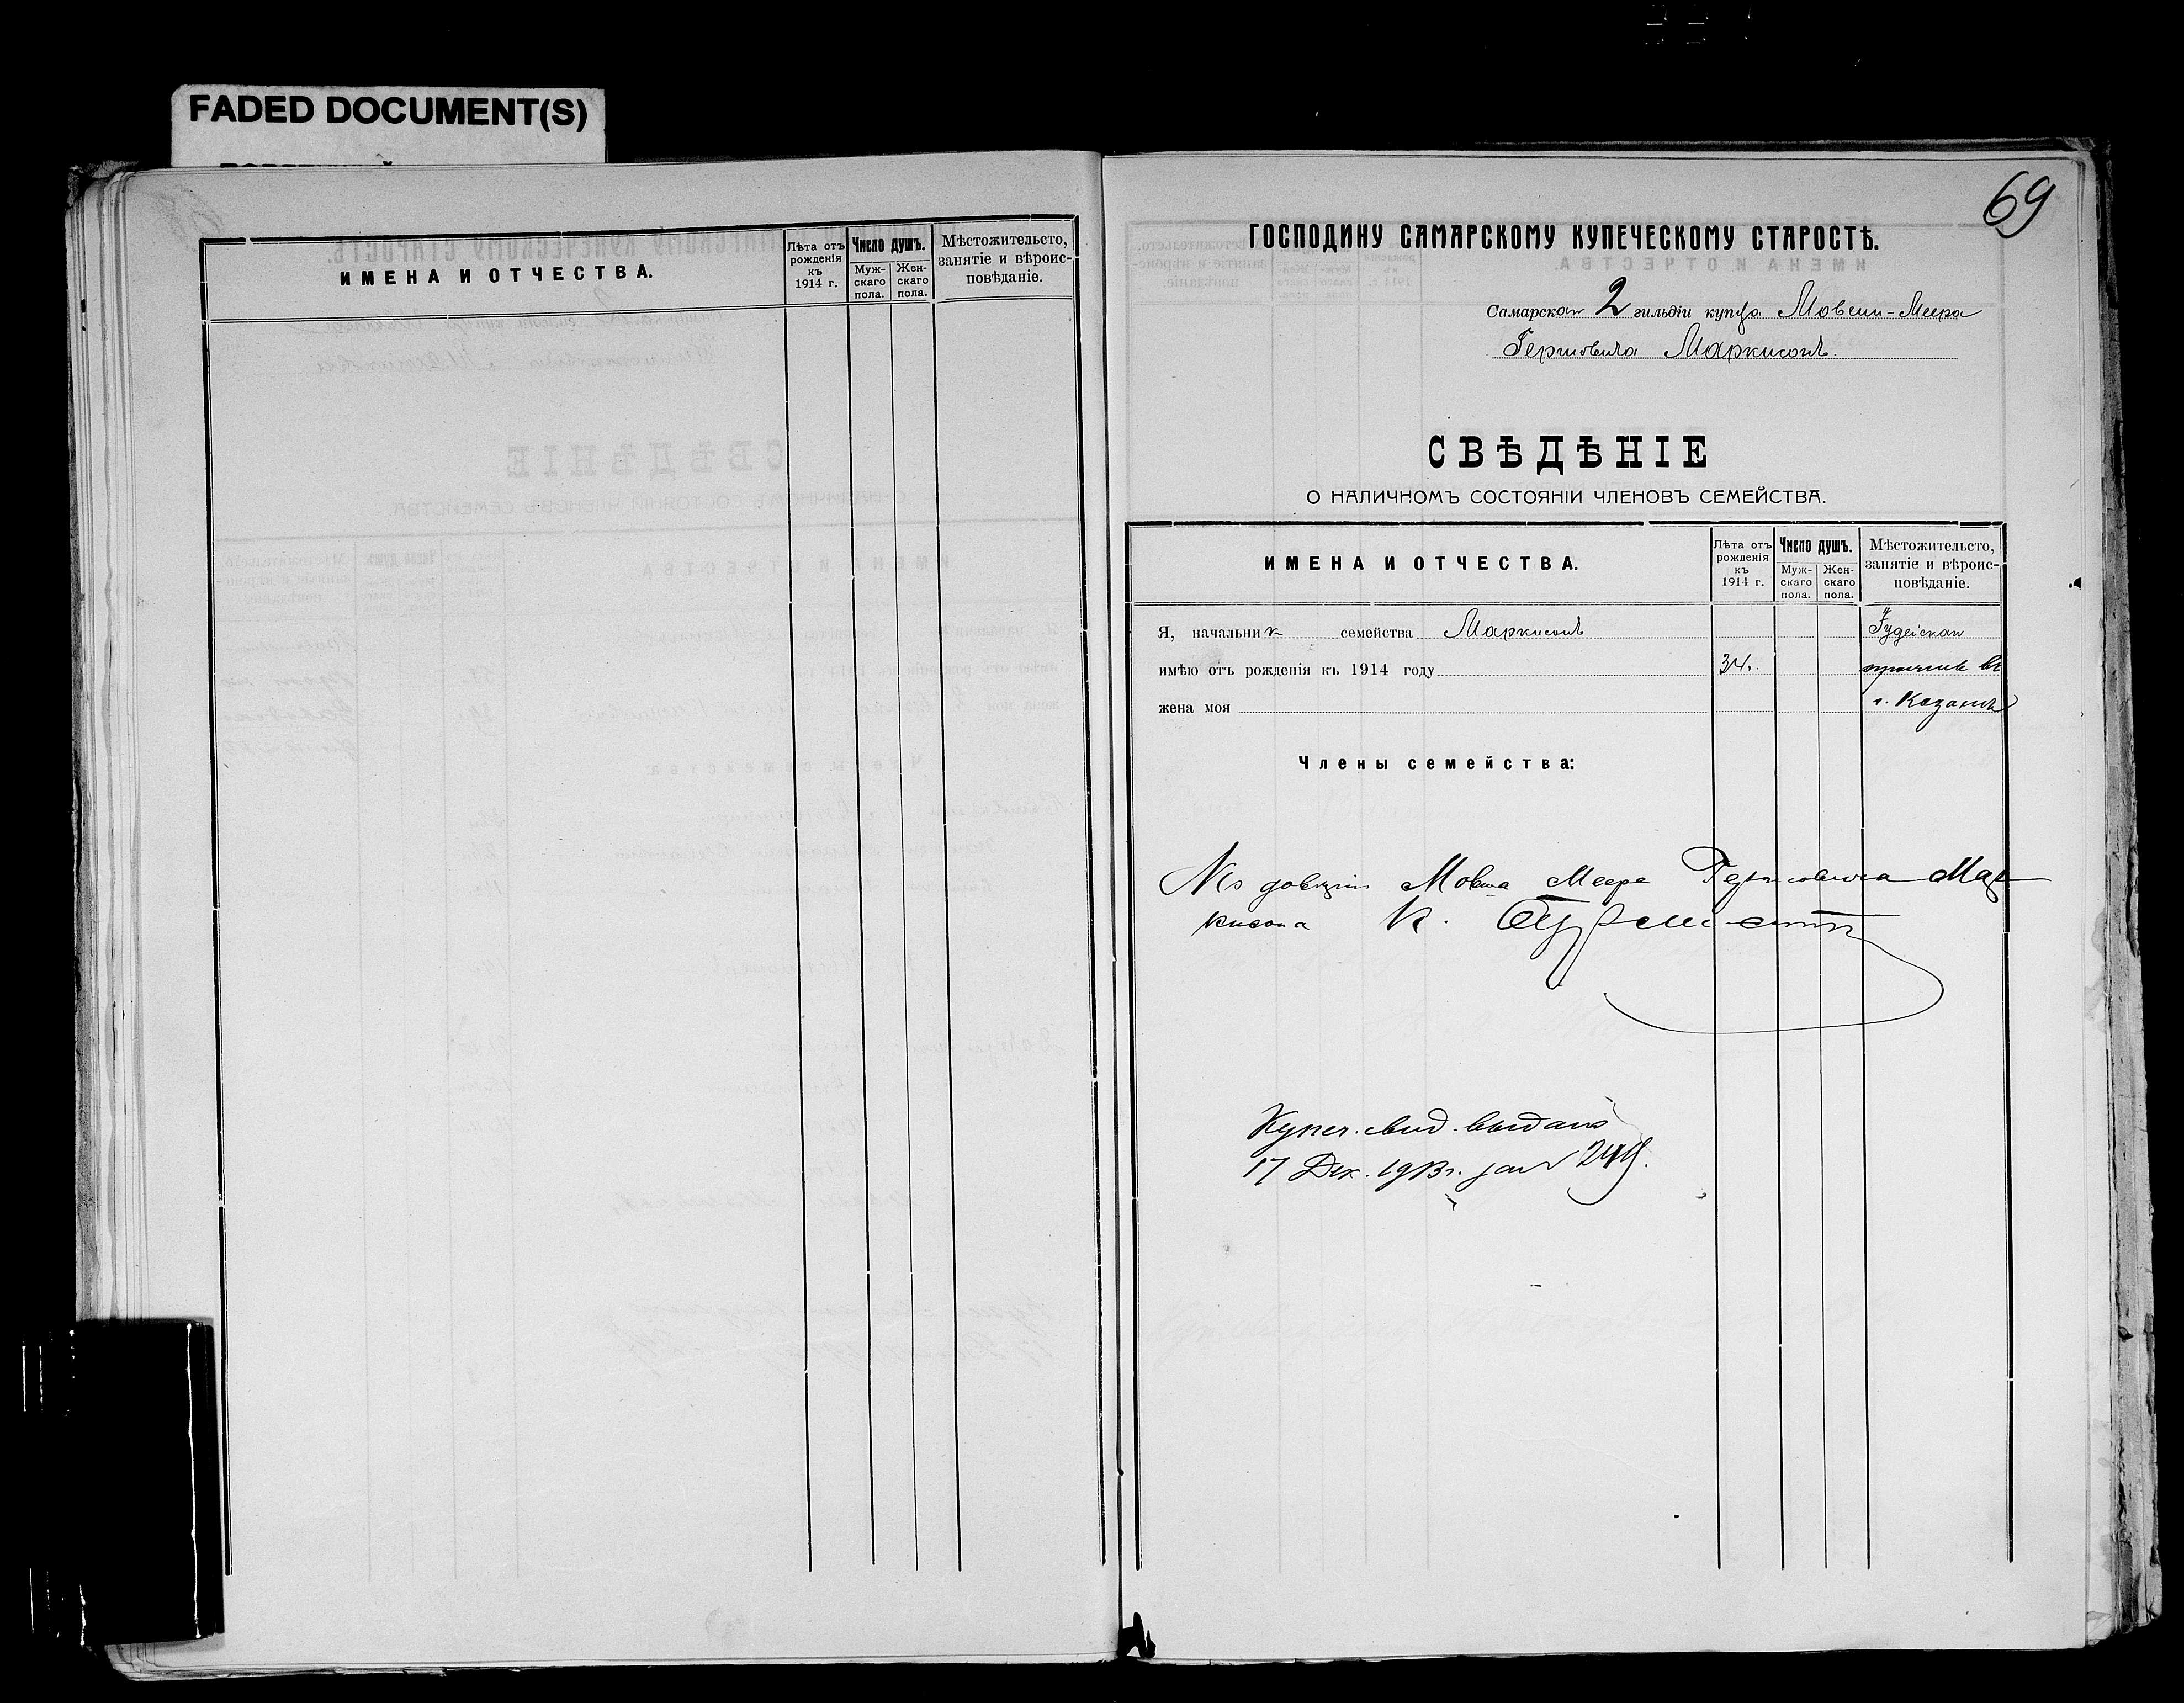 FADED DOCUMENT(S)
ИМЕНА И ОТЧЕСТВА.
Лѣта отъ рожденія къ 1914 г.
Число душъ.
Муж-скаго пола.
Жен-скаго пола.
Мѣстожительсто, занятіе и вѣроис-повѣданіе.
69
ГОСПОДИНУ САМАРСКОМУ КУПЕЧЕСКОМУ СТАРОСТѢ.
Самарскаг 2 гильдіи купца Мовши-Меера
Гершовича Маркисонъ.
СВѢДѢНІЕ
О НАЛИЧНОМЪ СОСТОЯНІИ ЧЛЕНОВЪ СЕМЕЙСТВА.
ИМЕНА И ОТЧЕСТВА.
Лѣта отъ рожденія къ 1914 г.
Число душъ.
Муж-скаго пола.
Жен-скаго пола.
Мѣстожительсто, занятіе и вѣроис-повѣданіе.
Я, начальник семейства Маркисонъ Іудейская
имѣю отъ рожденія къ 1914 году 34. въ
жена моя г. Казани
Члены семейства:
По Мовша Меера Гершовича Мар
кисона
Купеч. свид. выдано
17 Дек. 1913 г. за № 249.